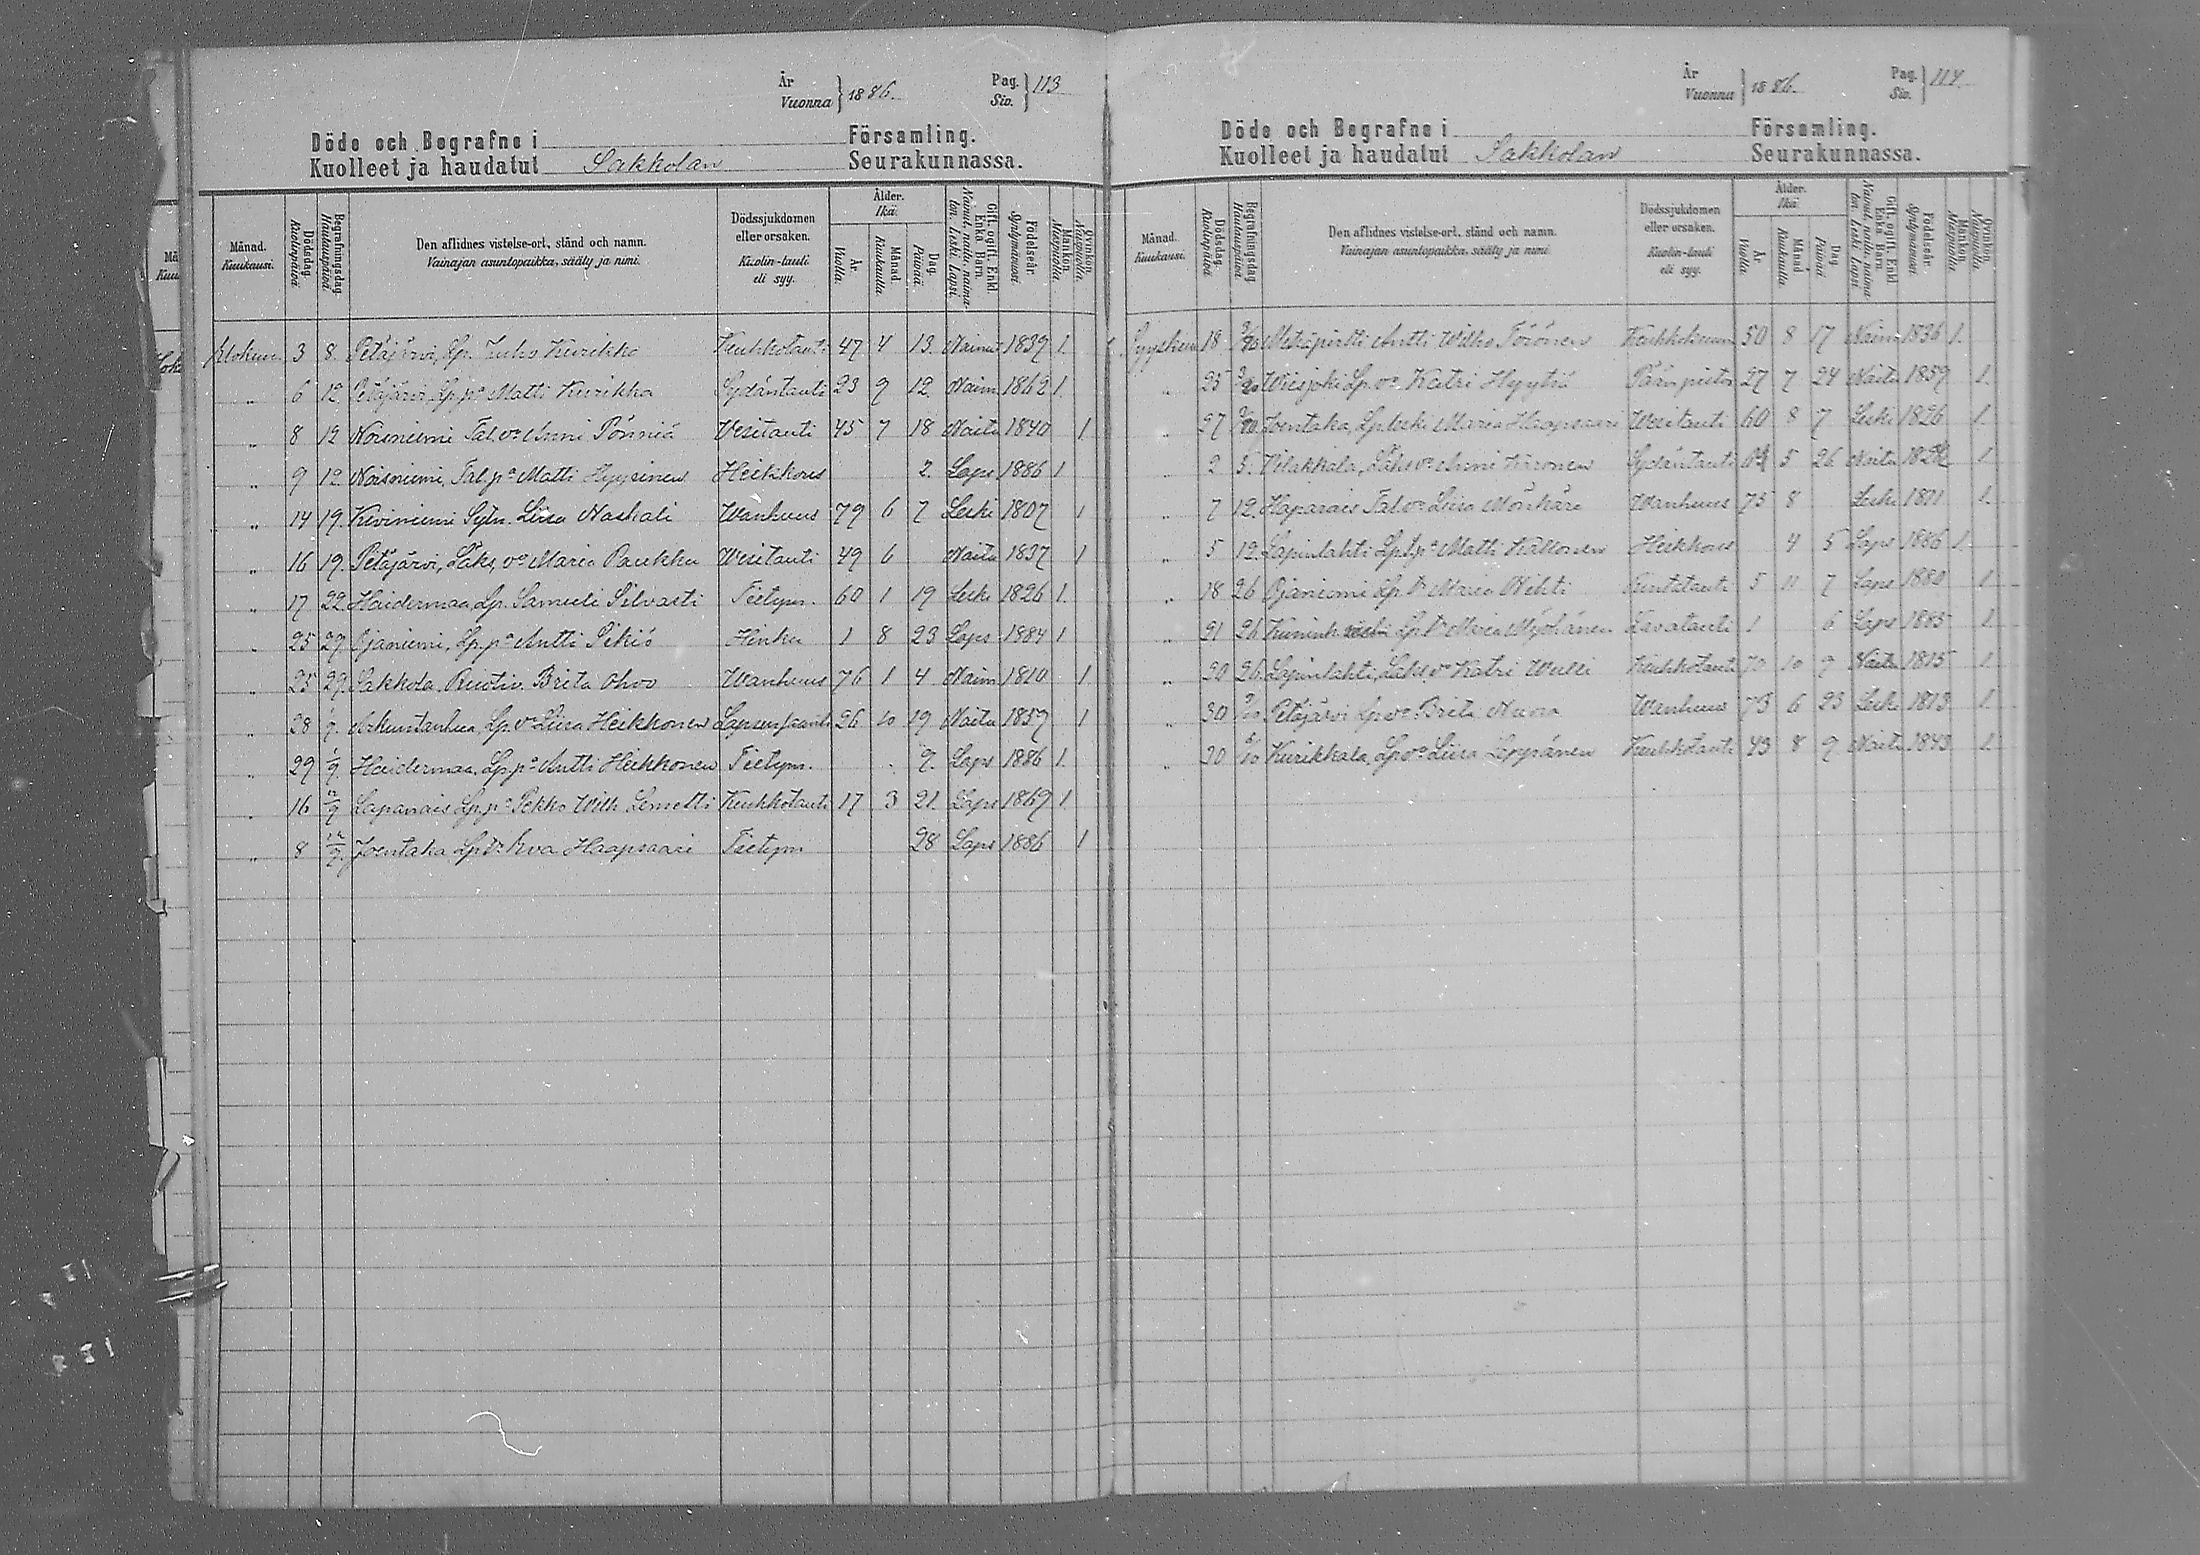 År
Vuonna } 1886.
Pag.
Siv. } 113
Döde och Begrafne i Församling.
Kuolleet ja haudatut Sakkolan Seurakunnassa.
Månad. Kuukausi.
Dödsdag. Kuolinpäivä
Begrafningsdag. Hautauspäivä
Den aflidnes vistelse-ort, stånd och namn.
Vainajan asuntopaikka, sääty ja nimi.
Dödssjukdomen eller orsaken.
Kuolin-tauti eli syy.
Ålder. Ikä.
År. Vuolla
Månad. Kuukaulla
Dag. Päivää
Gift, ogift, Enkl. Enka, Barn.
Nainut, naitu, naimaton, Leski, Lapsi.
Födelseår. Syntymävuosi.
Mankön. Miespuolia.
Qvinkön. Naispuolia.
Elokuu 3 8. Petäjärvi, Lp. Juho Kurikko Keuhkotauti 47 4 13. Nainut 1839 1.
" 6 12. Petäjärvi, Lp. pa Matti Kurikka Sydäntauti 23 9 12. Naim 1862 1.
" 8 12 Noisniemi Tal. vo Anni Pönniä Wesitauti 45 7 18 Naitu 1840 1
" 9 12. Noisniemi, Tal. pa Matti Hyyrinen Heikkous 2. Laps 1886 1
" 14 19. Kiviniemi Sytn. Liisa Naskali Wanhuus 79 6 7 Leski 1807 1
" 16 19. Petäjärvi, Läks. vo Maria Paukku Wesitauti 49 6 Naitu 1837 1
" 17 22 Haidermaa, Lp. Samuli Silvasti Tietym. 60 1 19 Leski 1826 1.
" 25 29. Ojaniemi, Lp. pa Antti Sikiö Hinku 1 8 23 Laps 1884 1
" 25 29. Sakkola, Ruotiv. Brita Ohvo Wanhuus 76 1 4 Naim 1810 1
" 28 1/9. Arkuntanhua, Lp. vo Liisa Heikkonen 26 10 19 Naitu 1859 1
" 29 1/9. Haidermaa, Lp. pa Antti Heikkonen Tietym. 9. Laps 1886 1.
" 16 Lapanais Lp. pa Pekko Wilh. Lemetti Keuhkotauti 17 3 21. Laps 1869 1.
" 8 Joentaka Lp. tr Eva Haapsaari Tietym 28 Laps 1886 1
År
Vuonna } 1886.
Pag.
Siv. } 114.
Döde och Begrafne i Församling.
Kuolleet ja haudatut Sakkolan Seurakunnassa.
Månad. Kuukausi.
Dödsdag. Kuolinpäivä
Begrafningsdag. Hautauspäivä
Den aflidnes vistelse-ort, stånd och namn.
Vainajan asuntopaikka, sääty ja nimi.
Dödssjukdomen eller orsaken.
Kuolin-tauti eli syy.
Ålder. Ikä
År. Vuolla
Månad. Kuukaulla
Dag. Päivää
Gift, ogift, Enkl. Enka, Barn.
Nainut, naitu, naimaton, Leski, Lapsi.
Födelseår. Syntymävuosi.
Mankön. Miespuolia
Qvinkön. Naispuolia.
Syyskuu 18 3/10 Metsäpirtti Antti Wilho Törönen 50 8 17 Naim 1836 1.
" 25 3/10 Wiisjoki Lp. vo Katri Hyytiä 27 7 24 Naitu 1859 1.
" 27 3/10 Joentaka, Lp. leski Maria Haapsaari Wesitauti 60 8 7 Leski 1826 1.
" 2 5. Wilakkala, Läks vo Anni Kiuronen Sydäntauti 5 26 Naitu 1.
" 7 12. Haparais Tal. vo Liisa Mönkäre Wanhuus 75 8 Leski 1811 1.
" 5 12. Lapinlahti Lp. pa Matti Kallonen Heikkous 4 5 Laps 1886 1.
" 18 26 Ojaniemi Lp. tr Maria Nihti Rintatauti 5 11 7 Laps 1880 1.
" 21 26. Lp. tr Maria Myöhänen Lavatauti 1 6 Laps 1885 1.
" 20 26. Lapinlahti, Läks. vo Katri Wulli Keuhkotauti 70 10 9 Naitu 1815 1.
" 30 Petäjärvi Lp. vo Brita Nuora Wanhuus 73 6 23 Leski 1813 1.
" 30 Kurikkala, Lp. vo Liisa Leppänen Keuhkotauti 43 8 9. Naitu 1843 1.